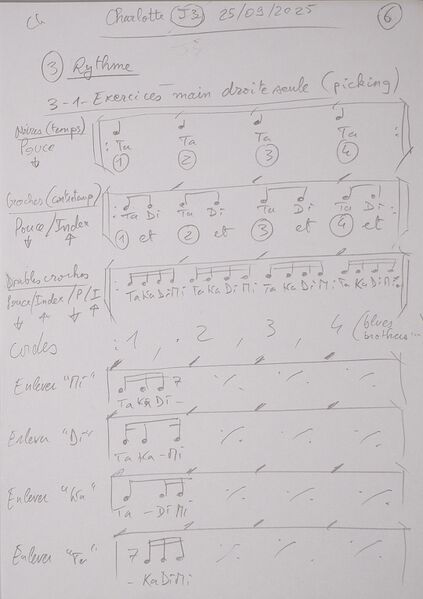 Ch Charlotte J3 25/09/2025 6
3 Rythme
3-1- Exercices main droite seule (picking)
Noires (temps)
Pouce
Ta Ta Ta Ta
1 2 3 4
Croches (contretemps)
Pouce/Index
Ta Di Ta Di Ta Di Ta Di
1 et 2 et 3 et 4 et
Doubles croches
Pouce/Index/P/I
Ta Ka Di Mi Ta Ka Di Mi Ta Ka Di Mi Ta Ka Di Mi
Cordes : 1, 2, 3, 4 (blues brothers...
Enlever "Mi"
Ta Ka Di -
Enlever "Di"
Ta Ka - Mi
Enlever "Ka"
Ta - Di Mi
Enlever "Ta"
- Ka Di Mi